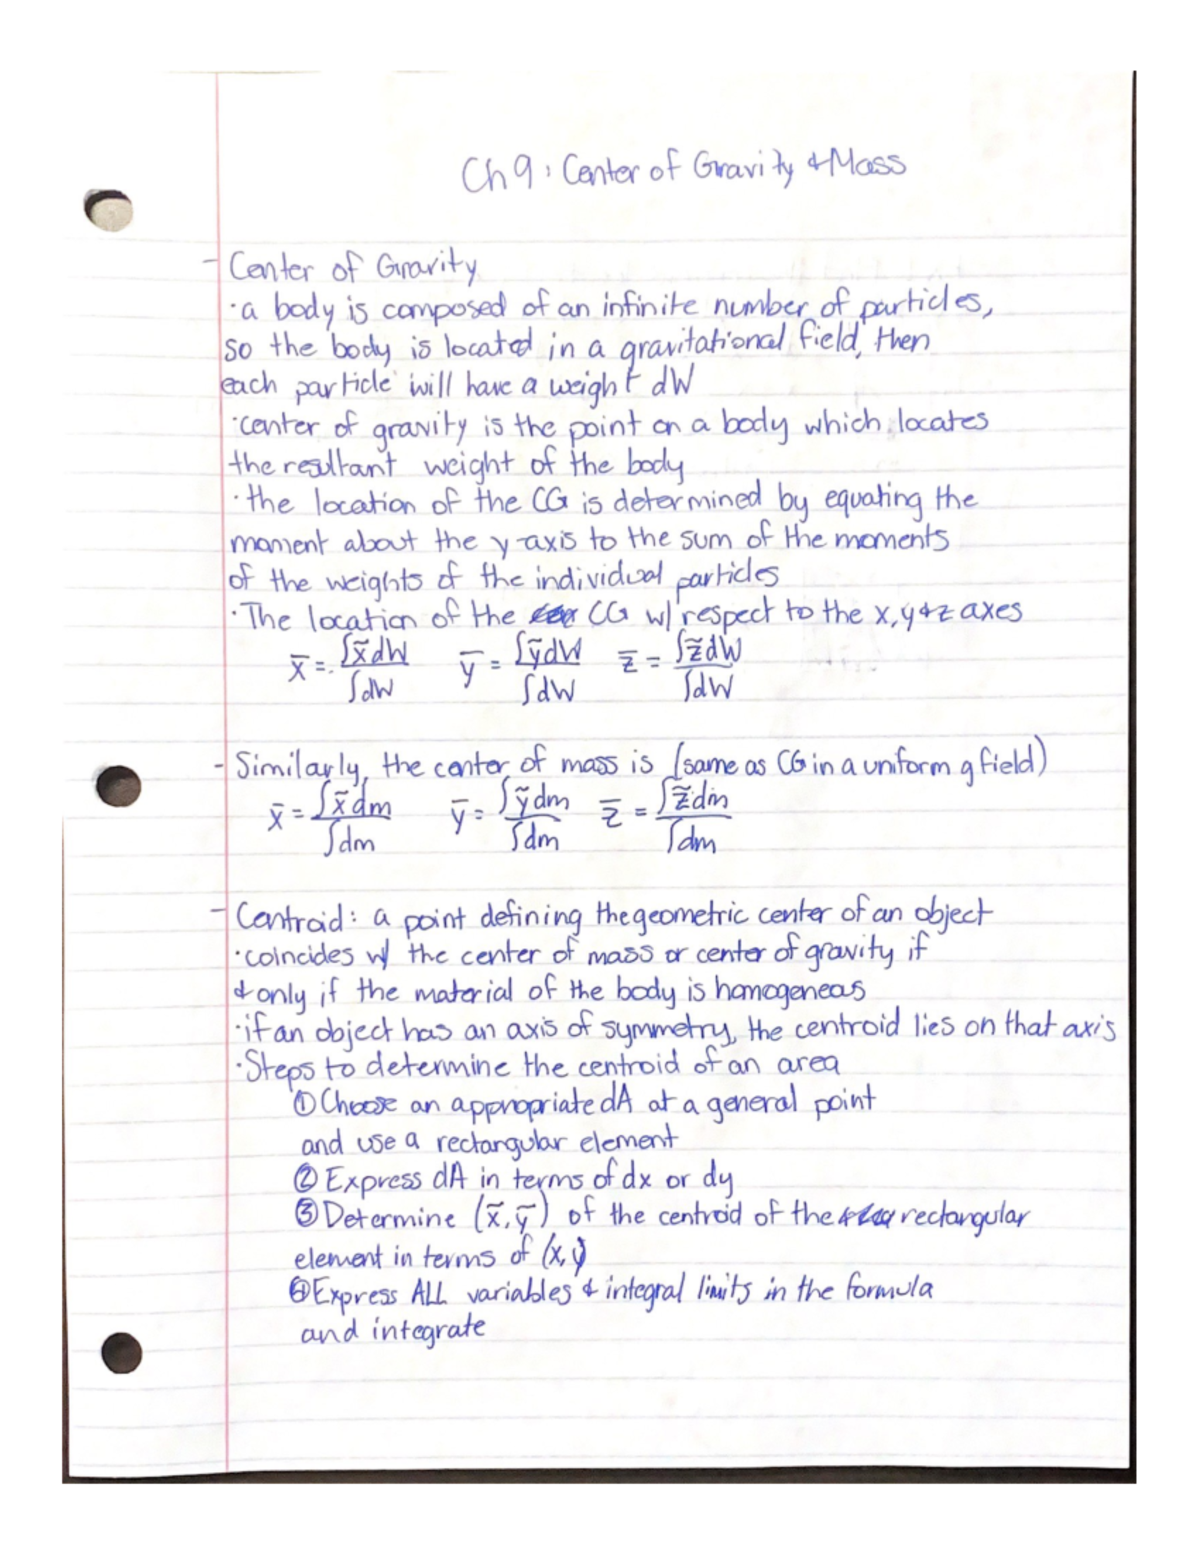 Ch 9: Center of Gravity & Mass
- Center of Gravity
· a body is composed of an infinite number of particles,
so the body is located in a gravitational field, then
each particle will have a weight dW
· center of gravity is the point on a body which locates
the resultant weight of the body
· the location of the CG is determined by equating the
moment about the y-axis to the sum of the moments
of the weights of the individual particles
· The location of the CG w/ respect to the x, y & z axes
x̄ = ∫x̃dW/∫dW   ȳ = ∫ỹdW/∫dW   z̄ = ∫z̃dW/∫dW
- Similarly, the center of mass is (same as CG in a uniform g field)
x̄ = ∫x̃dm/∫dm   ȳ = ∫ỹdm/∫dm   z̄ = ∫z̃dm/∫dm
- Centroid: a point defining the geometric center of an object
· coincides w/ the center of mass or center of gravity if
& only if the material of the body is homogeneas
· if an object has an axis of symmetry, the centroid lies on that axis
· Steps to determine the centroid of an area
① Choose an appropriate dA at a general point
and use a rectangular element
② Express dA in terms of dx or dy
③ Determine (x̃, ỹ) of the centroid of the rectangular
element in terms of (x, y)
④ Express ALL variables & integral limits in the formula
and integrate